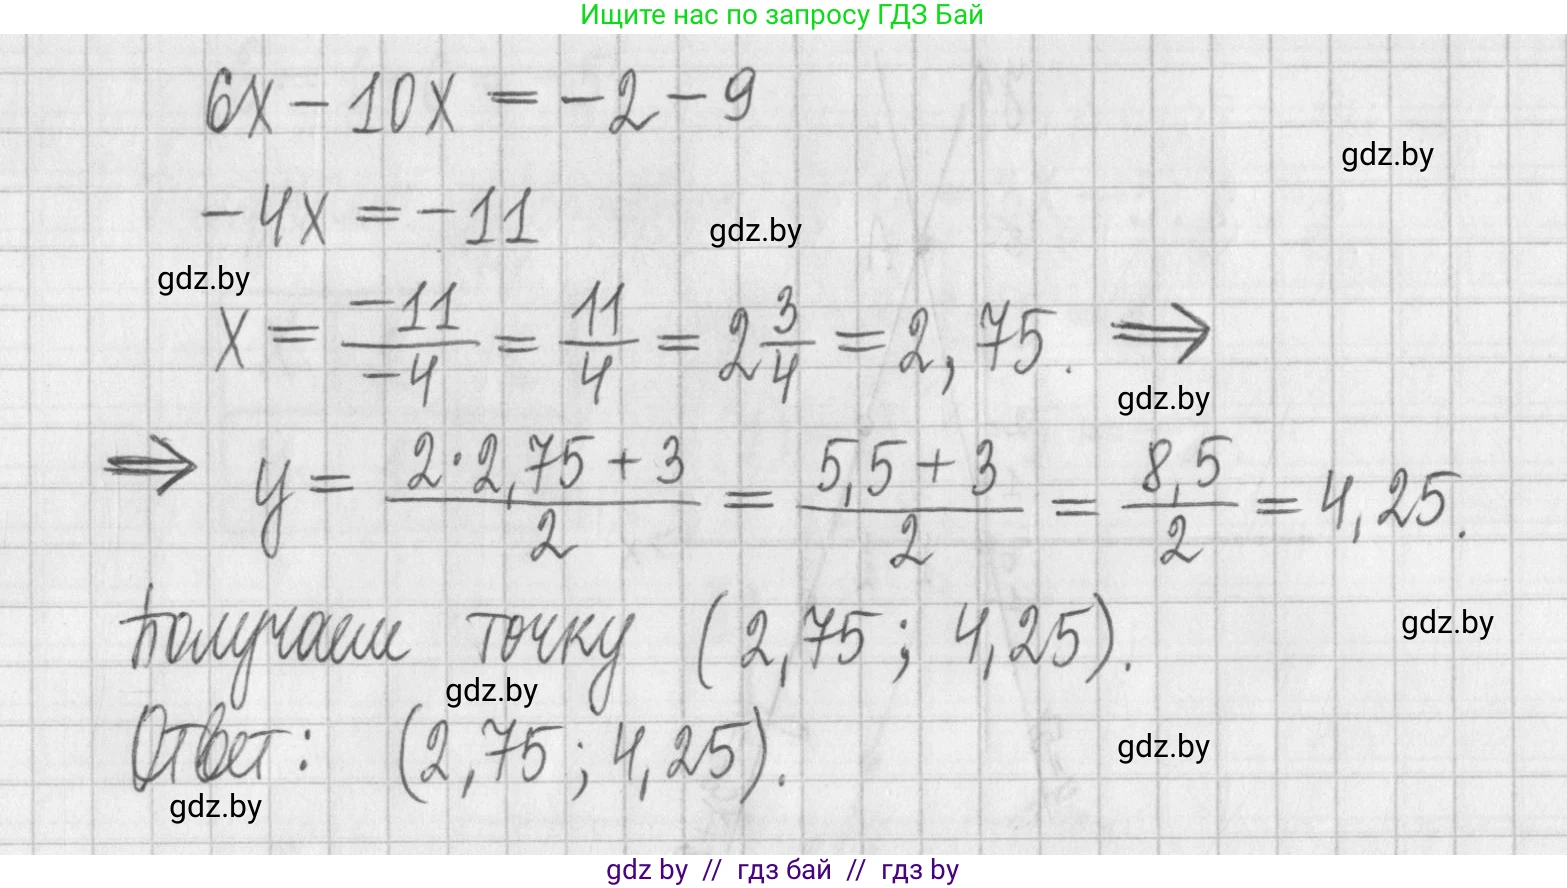 Ищите нас по запросу ГДЗ Бай
6x - 10x = -2 - 9
gdz.by
-4x = -11
gdz.by
gdz.by
x = -11/-4 = 11/4 = 2 3/4 = 2,75. ⇒
gdz.by
⇒ y = (2·2,75 + 3)/2 = (5,5 + 3)/2 = 8,5/2 = 4,25.
Получаем точку (2,75; 4,25).
gdz.by
gdz.by
Ответ: (2,75; 4,25).
gdz.by
gdz.by
gdz by // гдз бай // гдз by